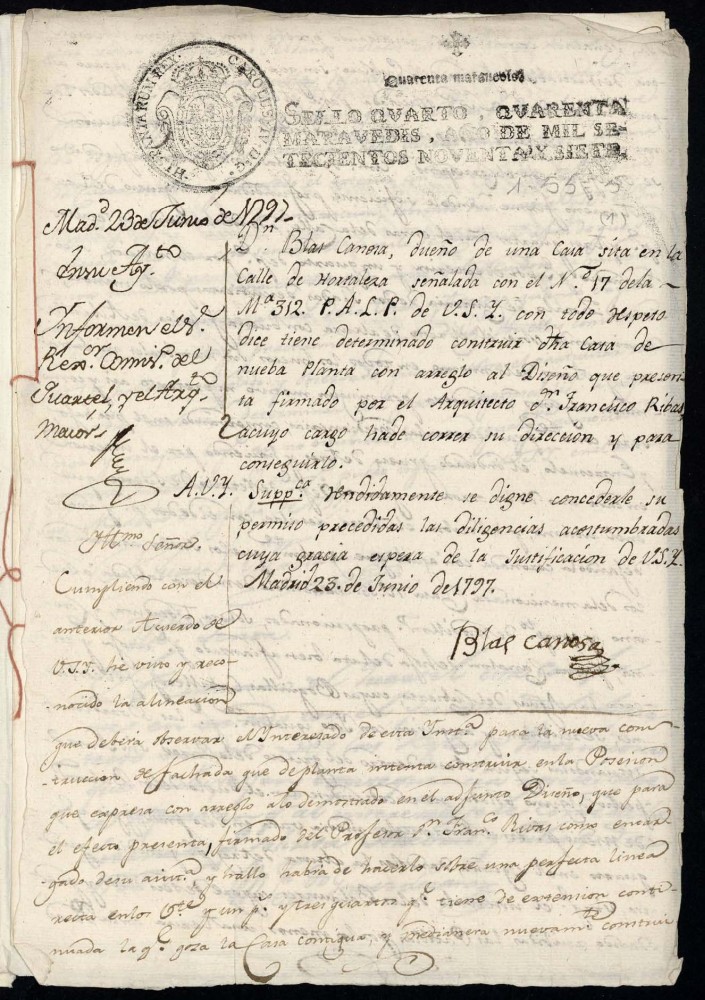 HISPANIARUM REX. CAROLUS IV D. G.
Quarenta maravedis.
SELLO QVARTO, QVARENTA
MARAVEDIS, AÑO DE MIL SE-
TECIENTOS NOVENTA Y SIETE.
1-55-5
(1)
Mad.d 23 de Junio de 1797.
En su Ay.to
Informen el S.r
Rex.or Comis.o del
Quartel, y el Arq.to
Maior.
D.n Blas Canosa, dueño de una Casa sita en la
Calle de Hortaleza señalada con el N.o 17 de la
M.a 312. P. A. L. P. de V.S.Y. con todo respeto
dice tiene determinado construir dha Casa de
nueba Planta con arreglo al Diseño que presen-
ta firmado por el Arquitecto d.n Francisco Ribas,
a cuyo cargo hade correr su direccion y para
conseguirlo.
A.V.Y. Supp.ca rendidamente se digne concederle su
permiso precedidas las diligencias acostumbradas
cuya gracia espera de la Justificacion de V.S.Y.
Madrid 23. de Junio de 1797.
Blas Canosa
Yll.mo Señor.
Cumpliendo con el
anterior Acuerdo de
V.S.Y. he visto y reco-
nocido la alineacion
que deberá observar el Interesado de esta Inst.a para la nueva cons-
truccion de fachada que de planta intenta construir en la Posesion
que expresa con arreglo alo demostrado en el adjunto Diseño, que para
el efecto presenta, firmado del Profesor d.n Fran.co Rivas como encar-
gado de su asist.a y hallo habrá de hacerlo sobre una perfecta linea
recta en los y un p.e y tres quartos q.e tiene de extension conti-
nuada la q.e goza la Casa contigua, y medianera nuevam.te construi